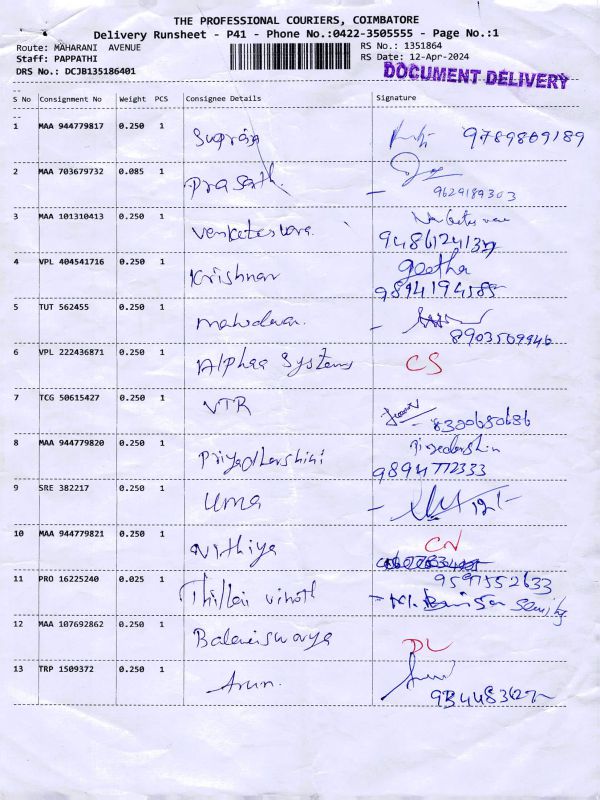 THE PROFESSIONAL COURIERS, COIMBATORE
Delivery Runsheet - P41 - Phone No.:0422-3505555 - Page No.:1
Route: MAHARANI AVENUE RS No.: 1351864
Staff: PAPPATHI RS Date: 12-Apr-2024
DRS No.: DCJB135186401 DOCUMENT DELIVERY
S No Consignment No Weight PCS Consignee Details Signature
1 MAA 944779817 0.250 1 9789869189
2 MAA 703679732 0.085 1 Prasath. 9629189303
3 MAA 101310413 0.250 1
4 VPL 404541716 0.250 1 Krishnan geetha
9894194585
5 TUT 562455 0.250 1 8903509946
6 VPL 222436871 0.250 1 Alphaa Systems CS
7 TCG 50615427 0.250 1 VTR 8300650686
8 MAA 944779820 0.250 1 Priyadharshini
9894772333
9 SRE 382217 0.250 1 Uma
10 MAA 944779821 0.250 1 Nithiya CN
11 PRO 16225240 0.025 1 Thillai vinoth 9597552633
12 MAA 107692862 0.250 1 DL
13 TRP 1509372 0.250 1 Arun.